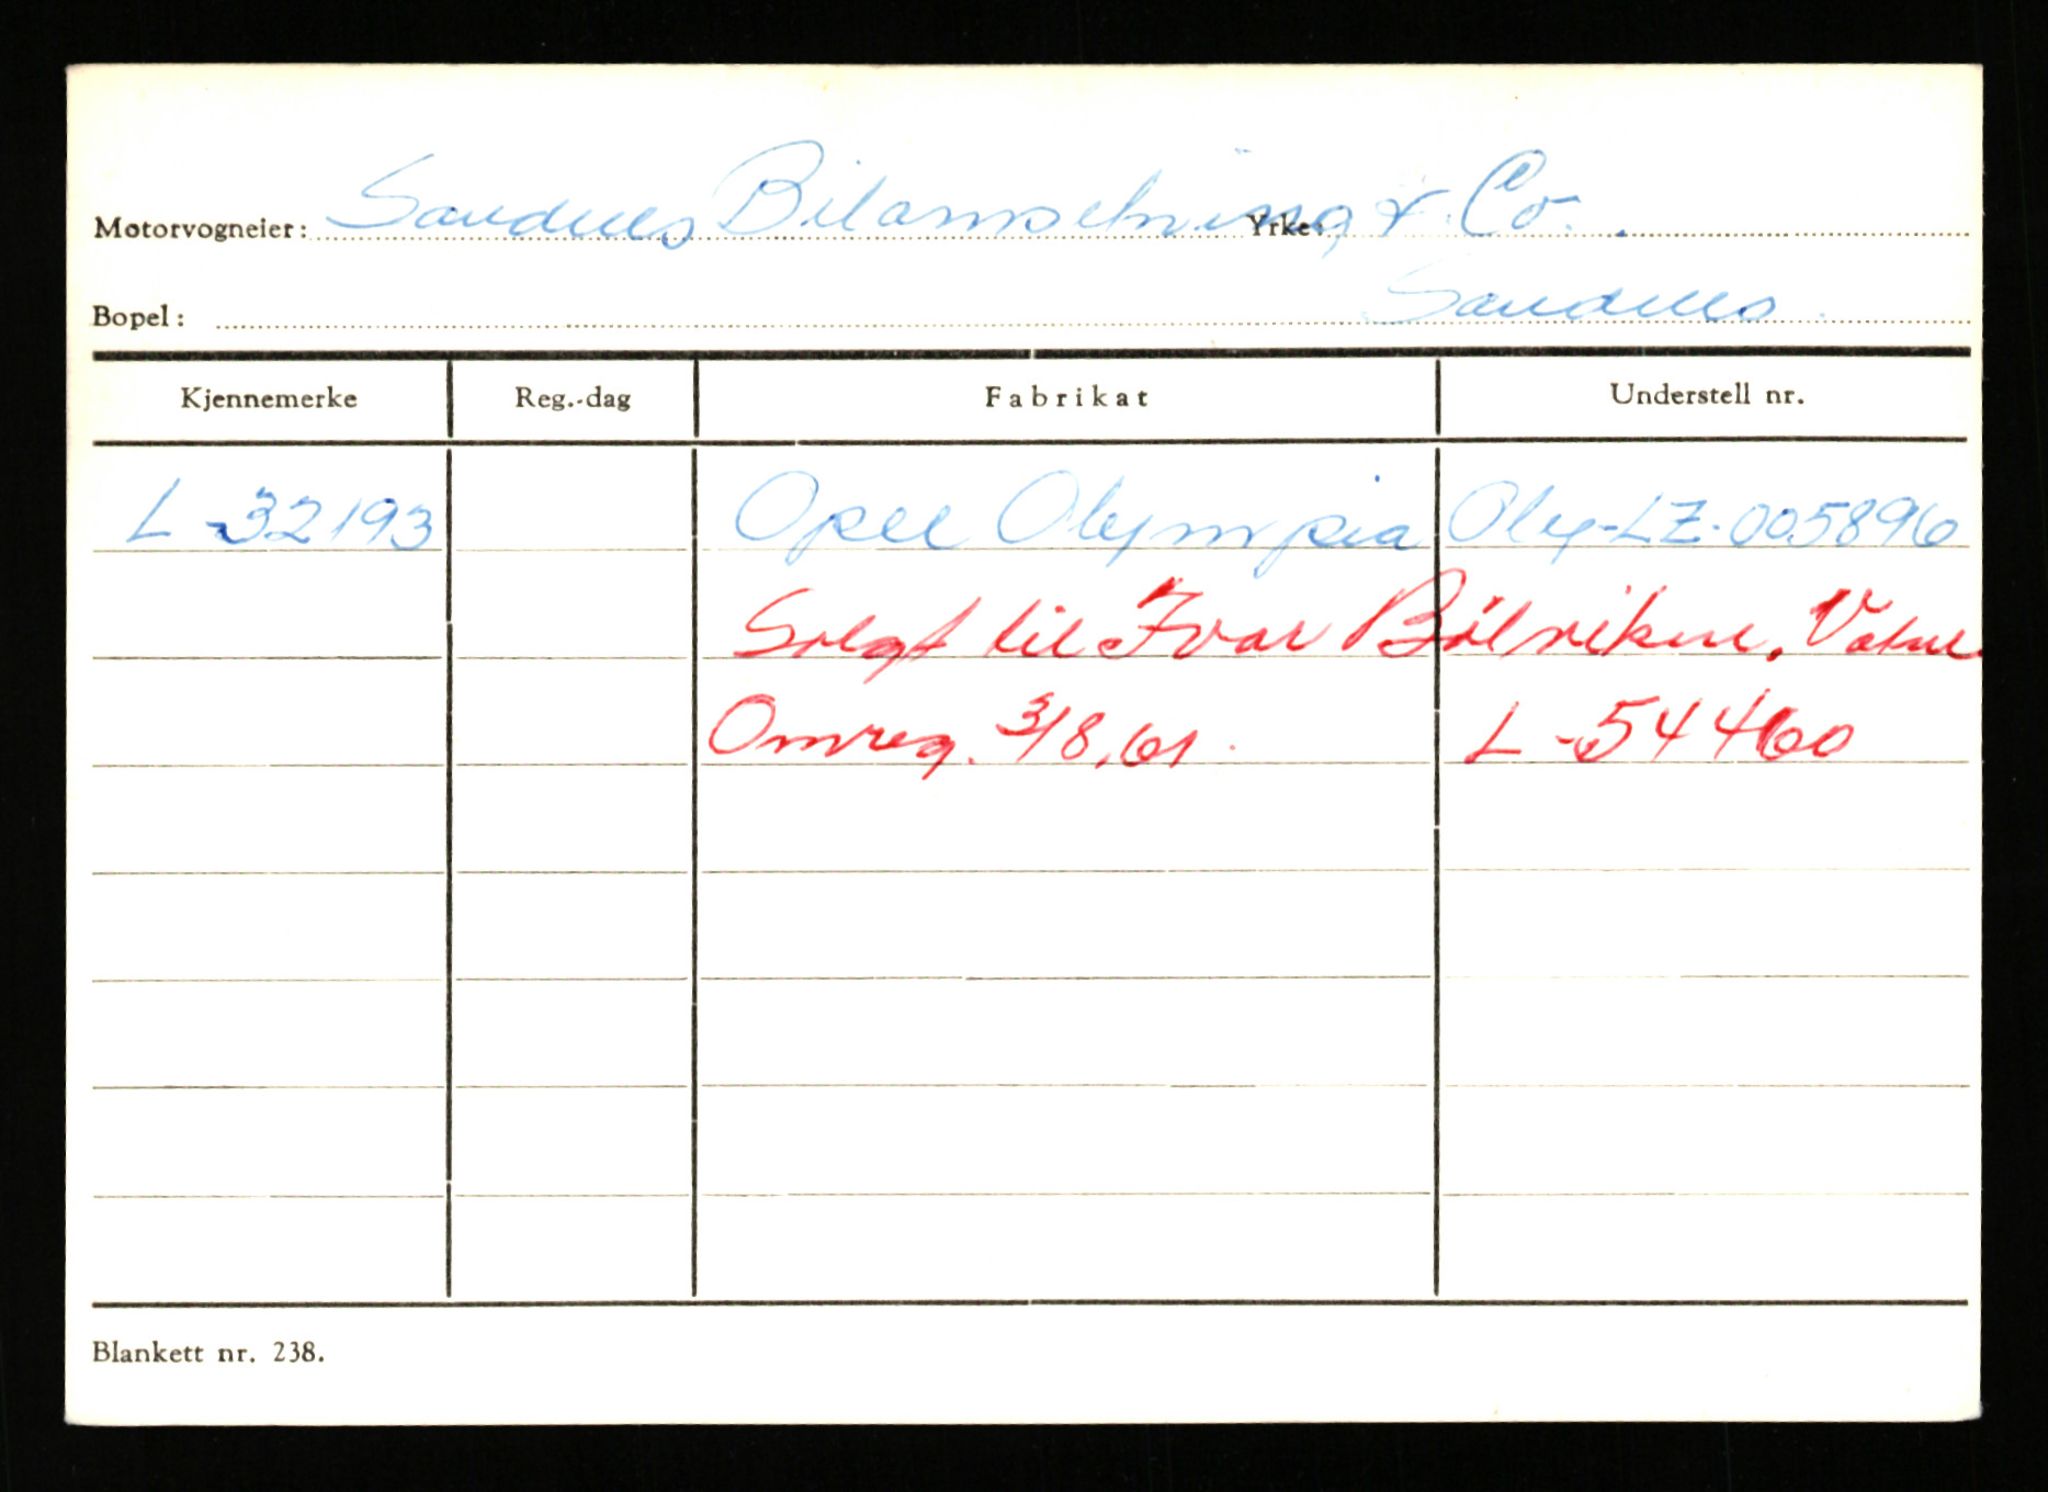 Motorvogneier: Sandnes Bilomsetning & Co. Yrke:
Bopel: Sandnes.
Kjennemerke Reg.-dag Fabrikat Understell nr.
L-32193 Opel Olympia Oly-LZ-005896
Solgt til Ivar Bölviken, Vatne
Omreg. 3/8.61. L-54460
Blankett nr. 238.